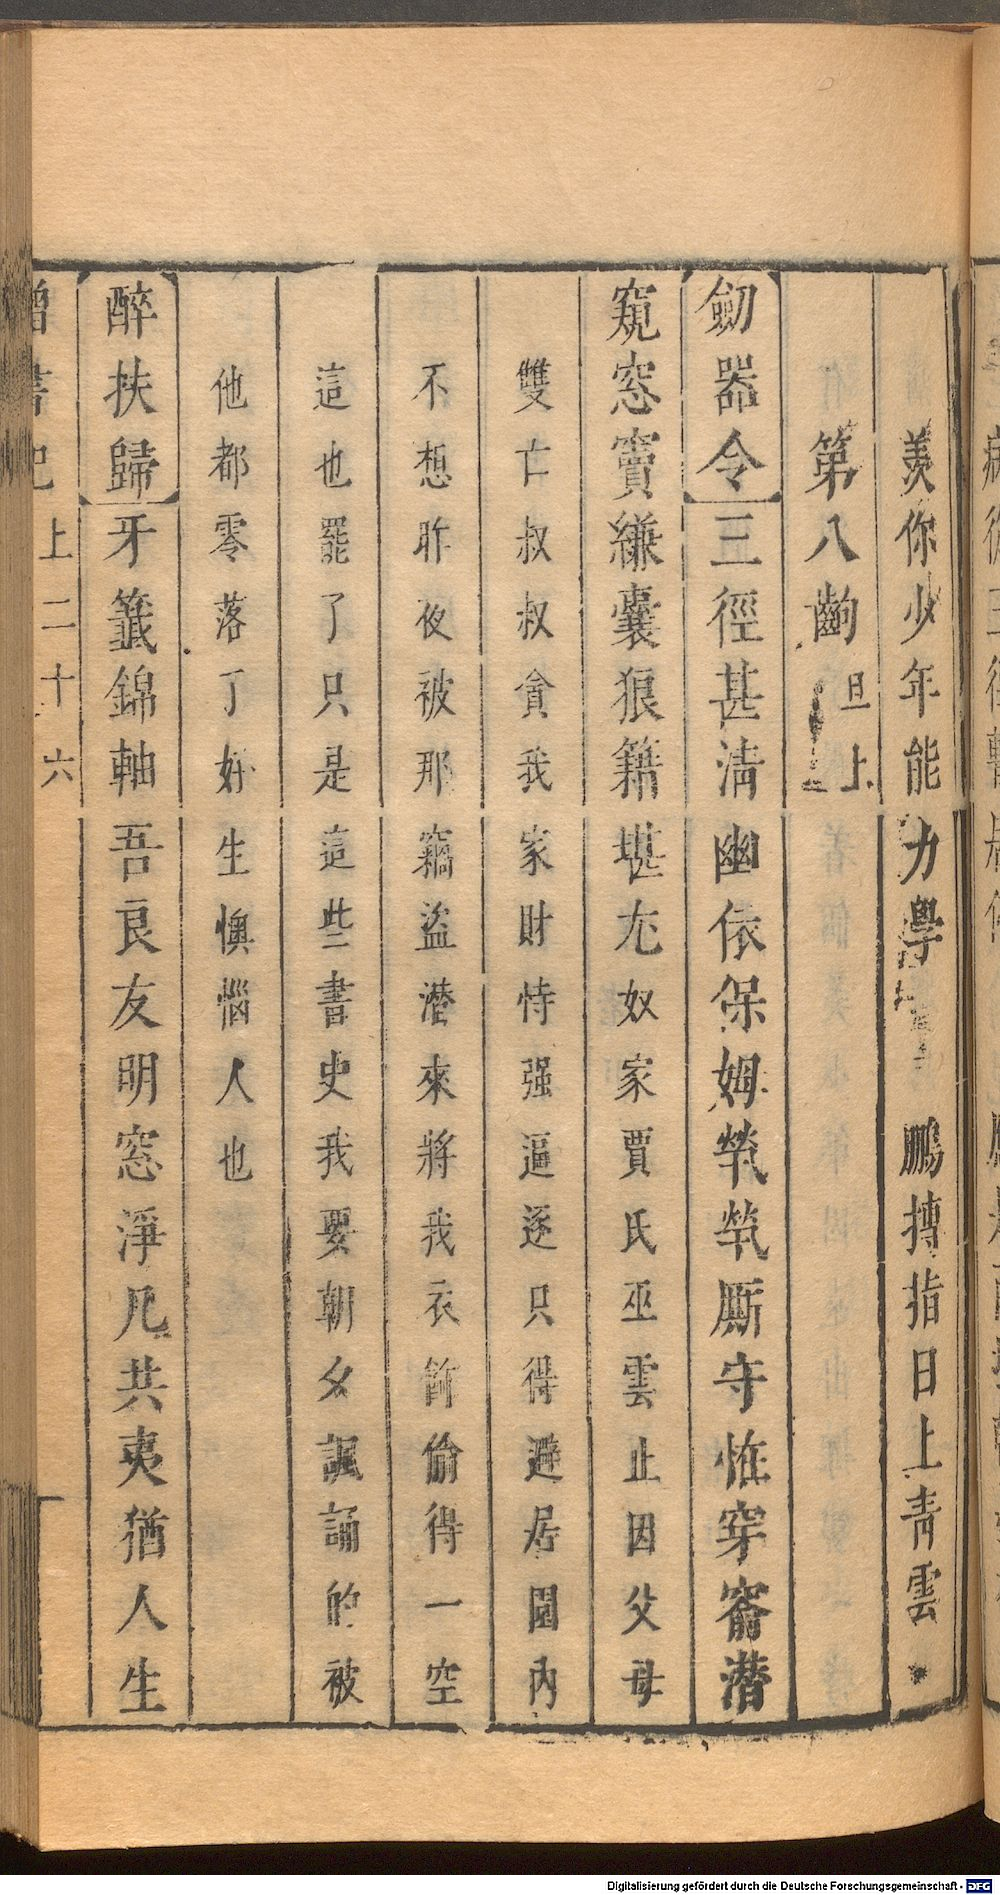 羨你少年能力學 鵬摶指日上青雲
第八齣 旦上
劒器令 三徑甚淸幽依保姆煢煢厮守恠穿窬潛
窺窓竇縑囊狠籍堪尤 奴家賈氏巫雲止因父母
雙亡叔叔貪我家財恃强逼逐只得避居園內
不想昨夜被那竊盜潛來將我衣飾偷得一空
這也罷了只是這些書史我要朝夕諷誦的被
他都零落了好生懊惱人也
醉扶歸 牙籤錦軸吾良友明窓淨几共夷猶人生
書 上二十六
Digitalisierung gefördert durch die Deutsche Forschungsgemeinschaft - DFG